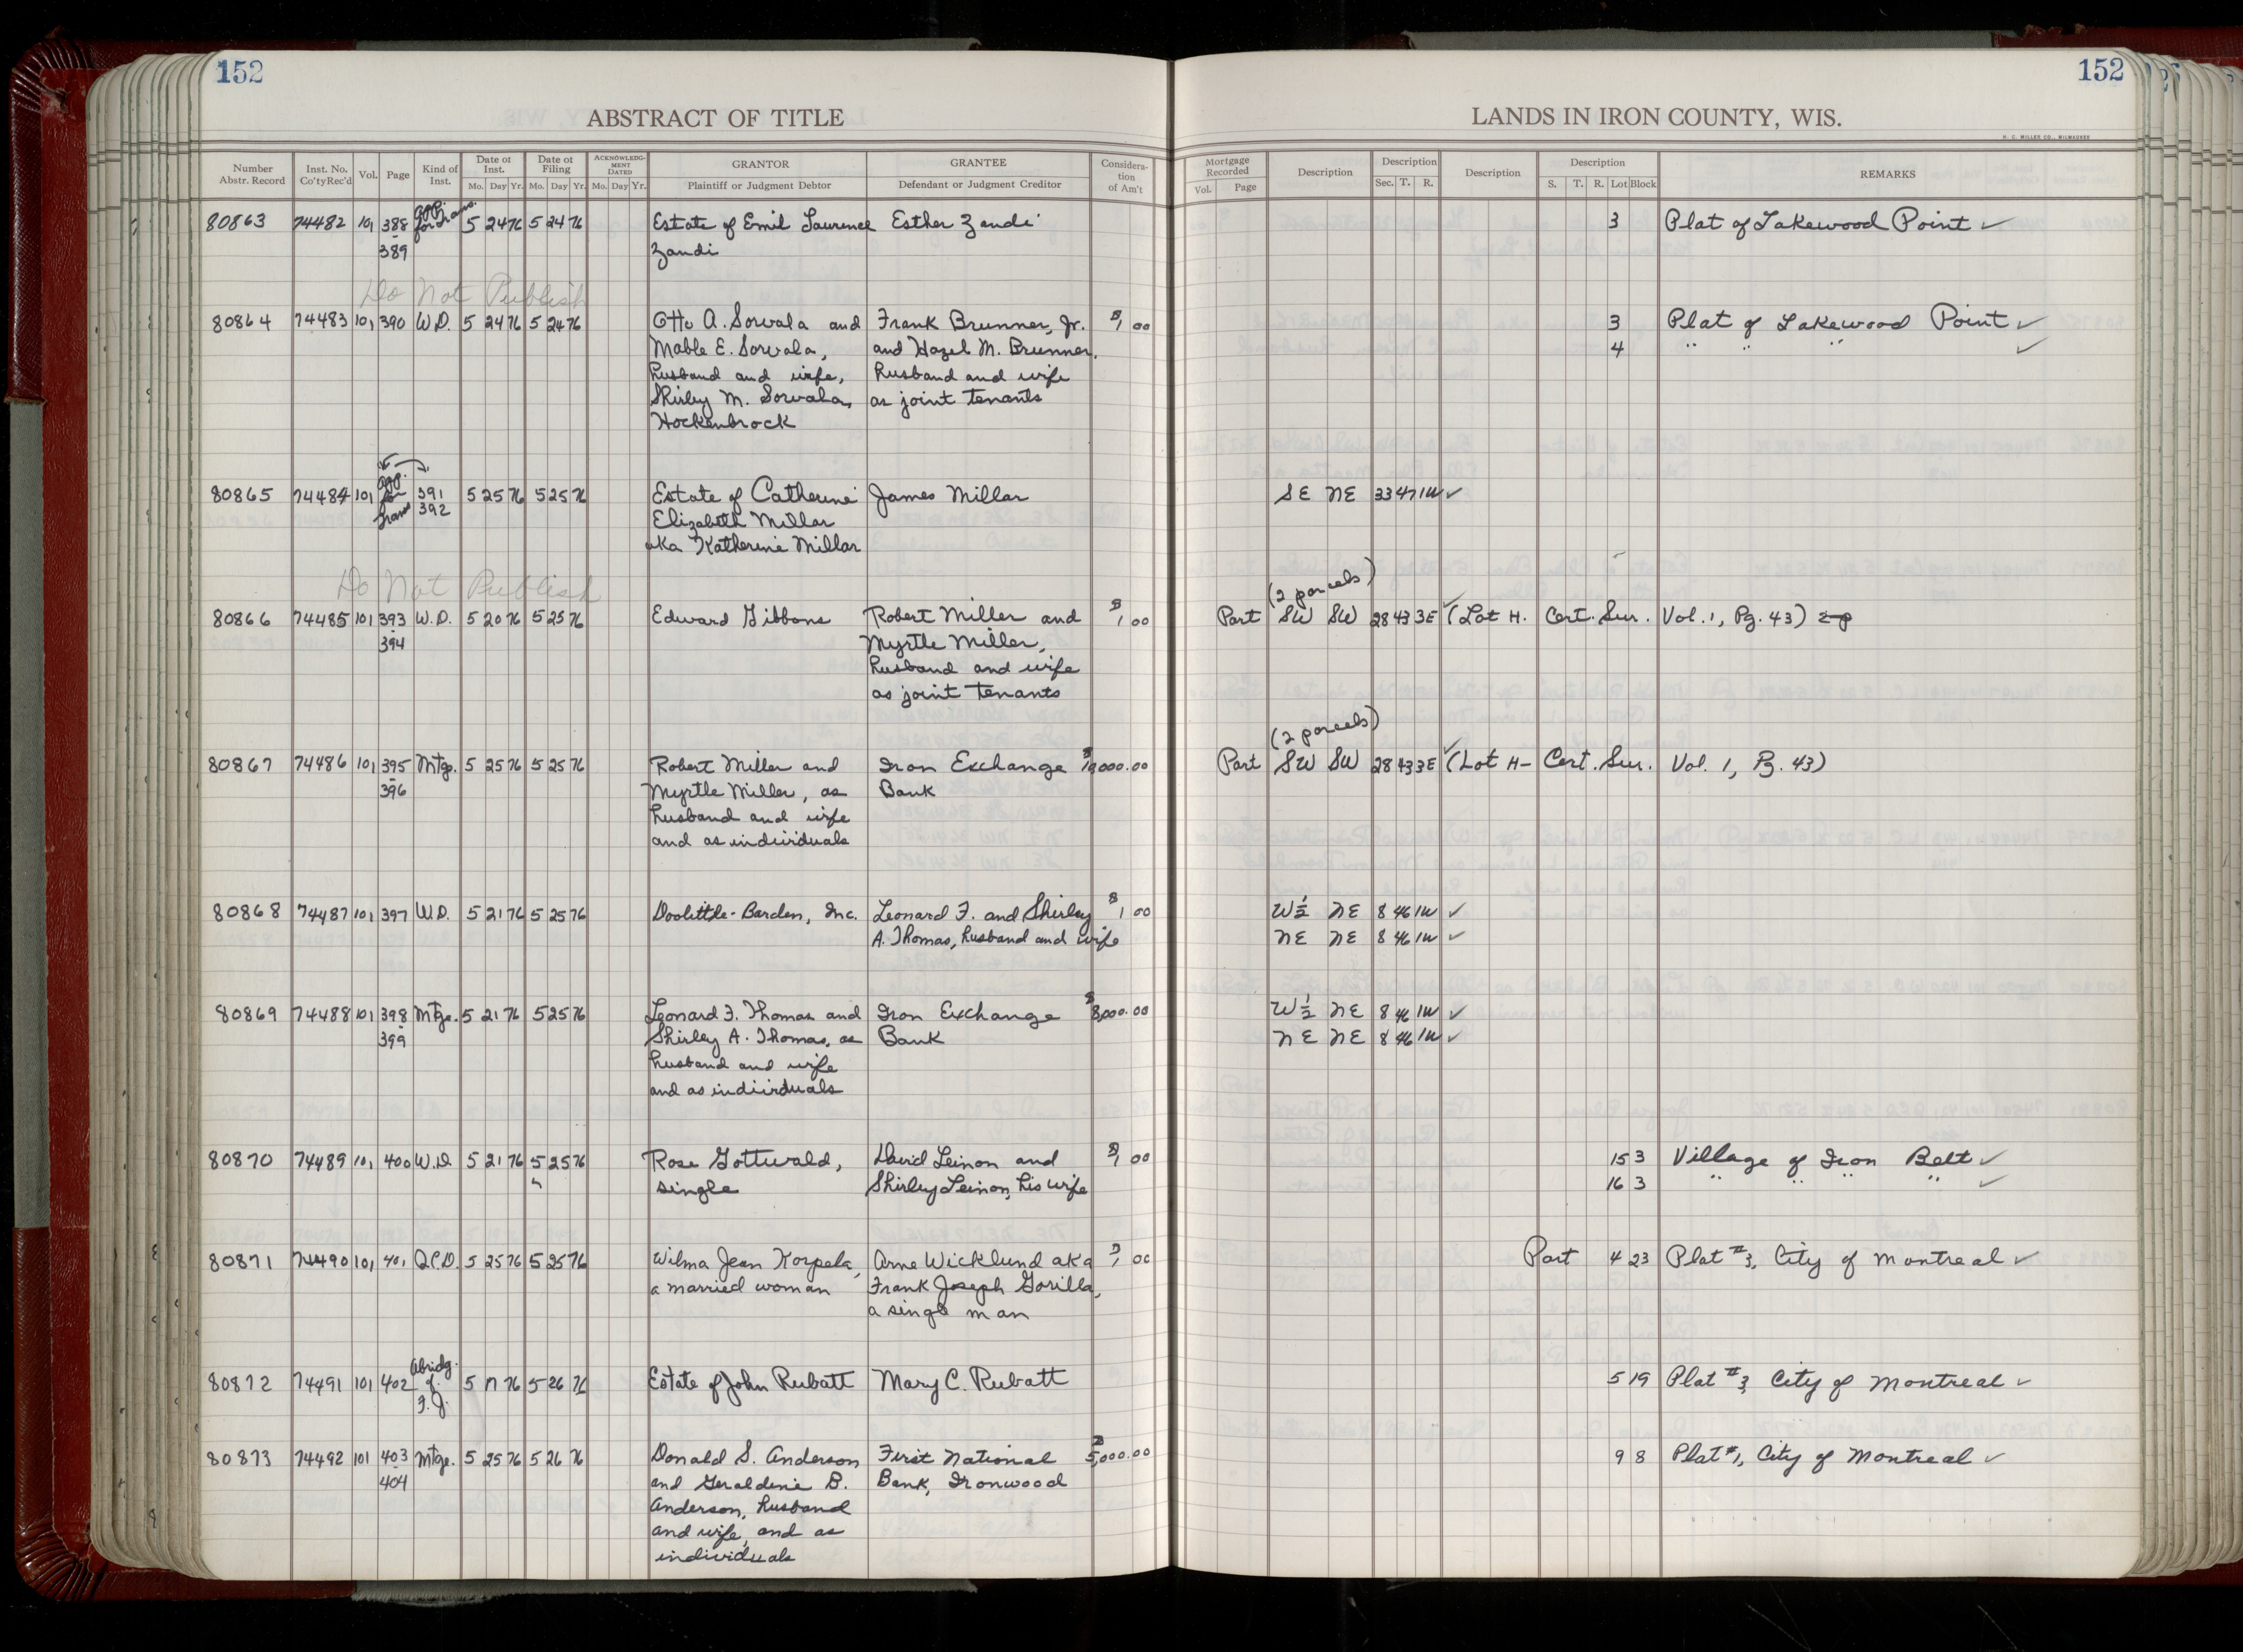 152
152
ABSTRACT OF TITLE
LANDS IN IRON COUNTY, WIS.
H. C. MILLER CO., MILWAUKEE
Number Abstr. Record | Inst. No. Co'ty Rec'd | Vol. | Page | Kind of Inst. | Date of Inst. Mo. Day Yr. | Date of Filing Mo. Day Yr. | ACKNOWLEDGMENT DATED Mo. Day Yr. | GRANTOR Plaintiff or Judgment Debtor | GRANTEE Defendant or Judgment Creditor | Consideration of Am't | Mortgage Recorded Vol. Page | Description | Description Sec. T. R. | Description | Description S. T. R. Lot Block | REMARKS
80863 74482 101 388 app. for Trans. 5 24 76 5 24 76 Estate of Emil Laurence Esther Zandi 3 Plat of Lakewood Point ✓
- 389 Zandi
Do Not Publish
80864 74483 101 390 W.D. 5 24 76 5 24 76 Otto A. Sorvala and Frank Brunner, Jr. $1 00 3 Plat of Lakewood Point ✓
Mable E. Sorvala, and Hazel M. Brunner, 4 " " " ✓
husband and wife, husband and wife
Shirley M. Sorvala, as joint tenants
Hockenbrock
80865 74484 101 app. for Trans 391 392 5 25 76 5 25 76 Estate of Catherine James Millar SE NE 33 47 1W ✓
Elizabeth Millar
aka Katherine Millar
Do Not Publish
(2 parcels)
80866 74485 101 393 W.D. 5 20 76 5 25 76 Edward Gibbons Robert Miller and $1 00 Part SW SW 28 43 3E ✓ (Lot H. Cert. Sur. Vol. 1, Pg. 43)
- 394 Myrtle Miller,
husband and wife
as joint tenants
(2 parcels)
80867 74486 101 395 Mtge. 5 25 76 5 25 76 Robert Miller and Iron Exchange $ 000.00 Part SW SW 28 43 3E ✓ (Lot H- Cert. Sur. Vol. 1, Pg. 43)
- 396 Myrtle Miller, as Bank
husband and wife
and as individuals
80868 74487 101 397 W.D. 5 21 76 5 25 76 Doolittle-Barden, Inc. Leonard F. and Shirley $1 00 W½ NE 8 46 1W ✓
A. Thomas, husband and wife NE NE 8 46 1W ✓
80869 74488 101 398 Mtge. 5 21 76 5 25 76 Leonard F. Thomas and Iron Exchange $8,000.00 W½ NE 8 46 1W ✓
- 399 Shirley A. Thomas, as Bank NE NE 8 46 1W ✓
husband and wife
and as individuals
80870 74489 101 400 W.D. 5 21 76 5 25 76 Rose Gottwald, David Leinon and $1 00 15 3 Village of Iron Belt ✓
single Shirley Leinon, his wife 16 3 " " " " ✓
80871 74490 101 401 Q.C.D. 5 25 76 5 25 76 Wilma Jean Korpela, Arne Wicklund aka $1 00 Part 4 23 Plat #3, City of Montreal ✓
a married woman Frank Joseph Gorilla,
a single man
80872 74491 101 402 Abridg. of F.J. 5 17 76 5 26 76 Estate of John Rubatt Mary C. Rubatt 5 19 Plat #3, City of Montreal ✓
80873 74492 101 403 Mtge. 5 25 76 5 26 76 Donald S. Anderson First National $5,000.00 9 8 Plat #1, City of Montreal ✓
- 404 and Geraldine B. Bank, Ironwood
Anderson, husband
and wife, and as
individuals